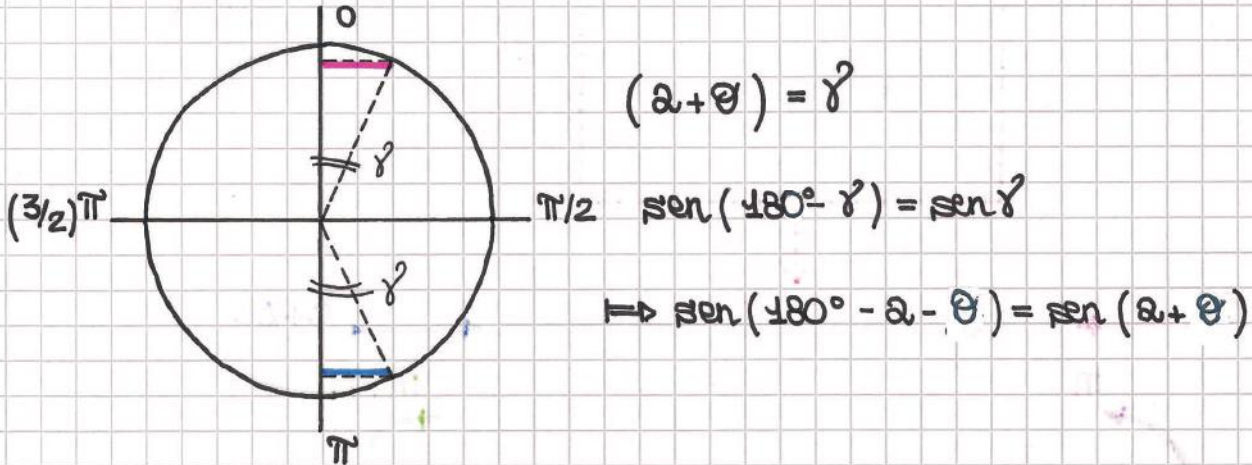 0
γ
(3/2)π
π/2
γ
π
(α + θ) = γ
sen(180° - γ) = sen γ
⟹ sen(180° - α - θ) = sen(α + θ)